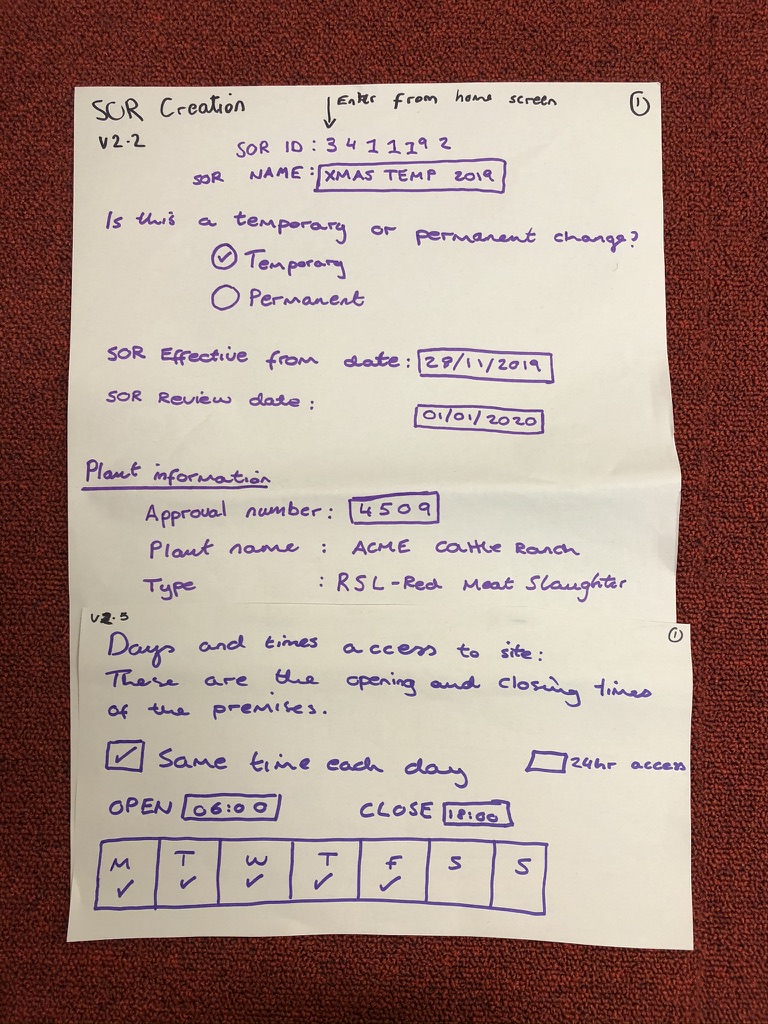 SOR Creation
Enter from home screen
1
V2.2
SOR ID : 3411192
SOR NAME : XMAS TEMP 2019
Is this a temporary or permanent change?
Temporary
Permanent
SOR Effective from date : 28/11/2019
SOR Review date :
01/01/2020
Plant information
Approval number : 4509
Plant name : ACME Cattle Ranch
Type : RSL-Red Meat Slaughter
V2.5
1
Days and times access to site:
These are the opening and closing times
of the premises.
Same time each day
24hr access
OPEN 06:00 CLOSE 18:00
M T W T F S S